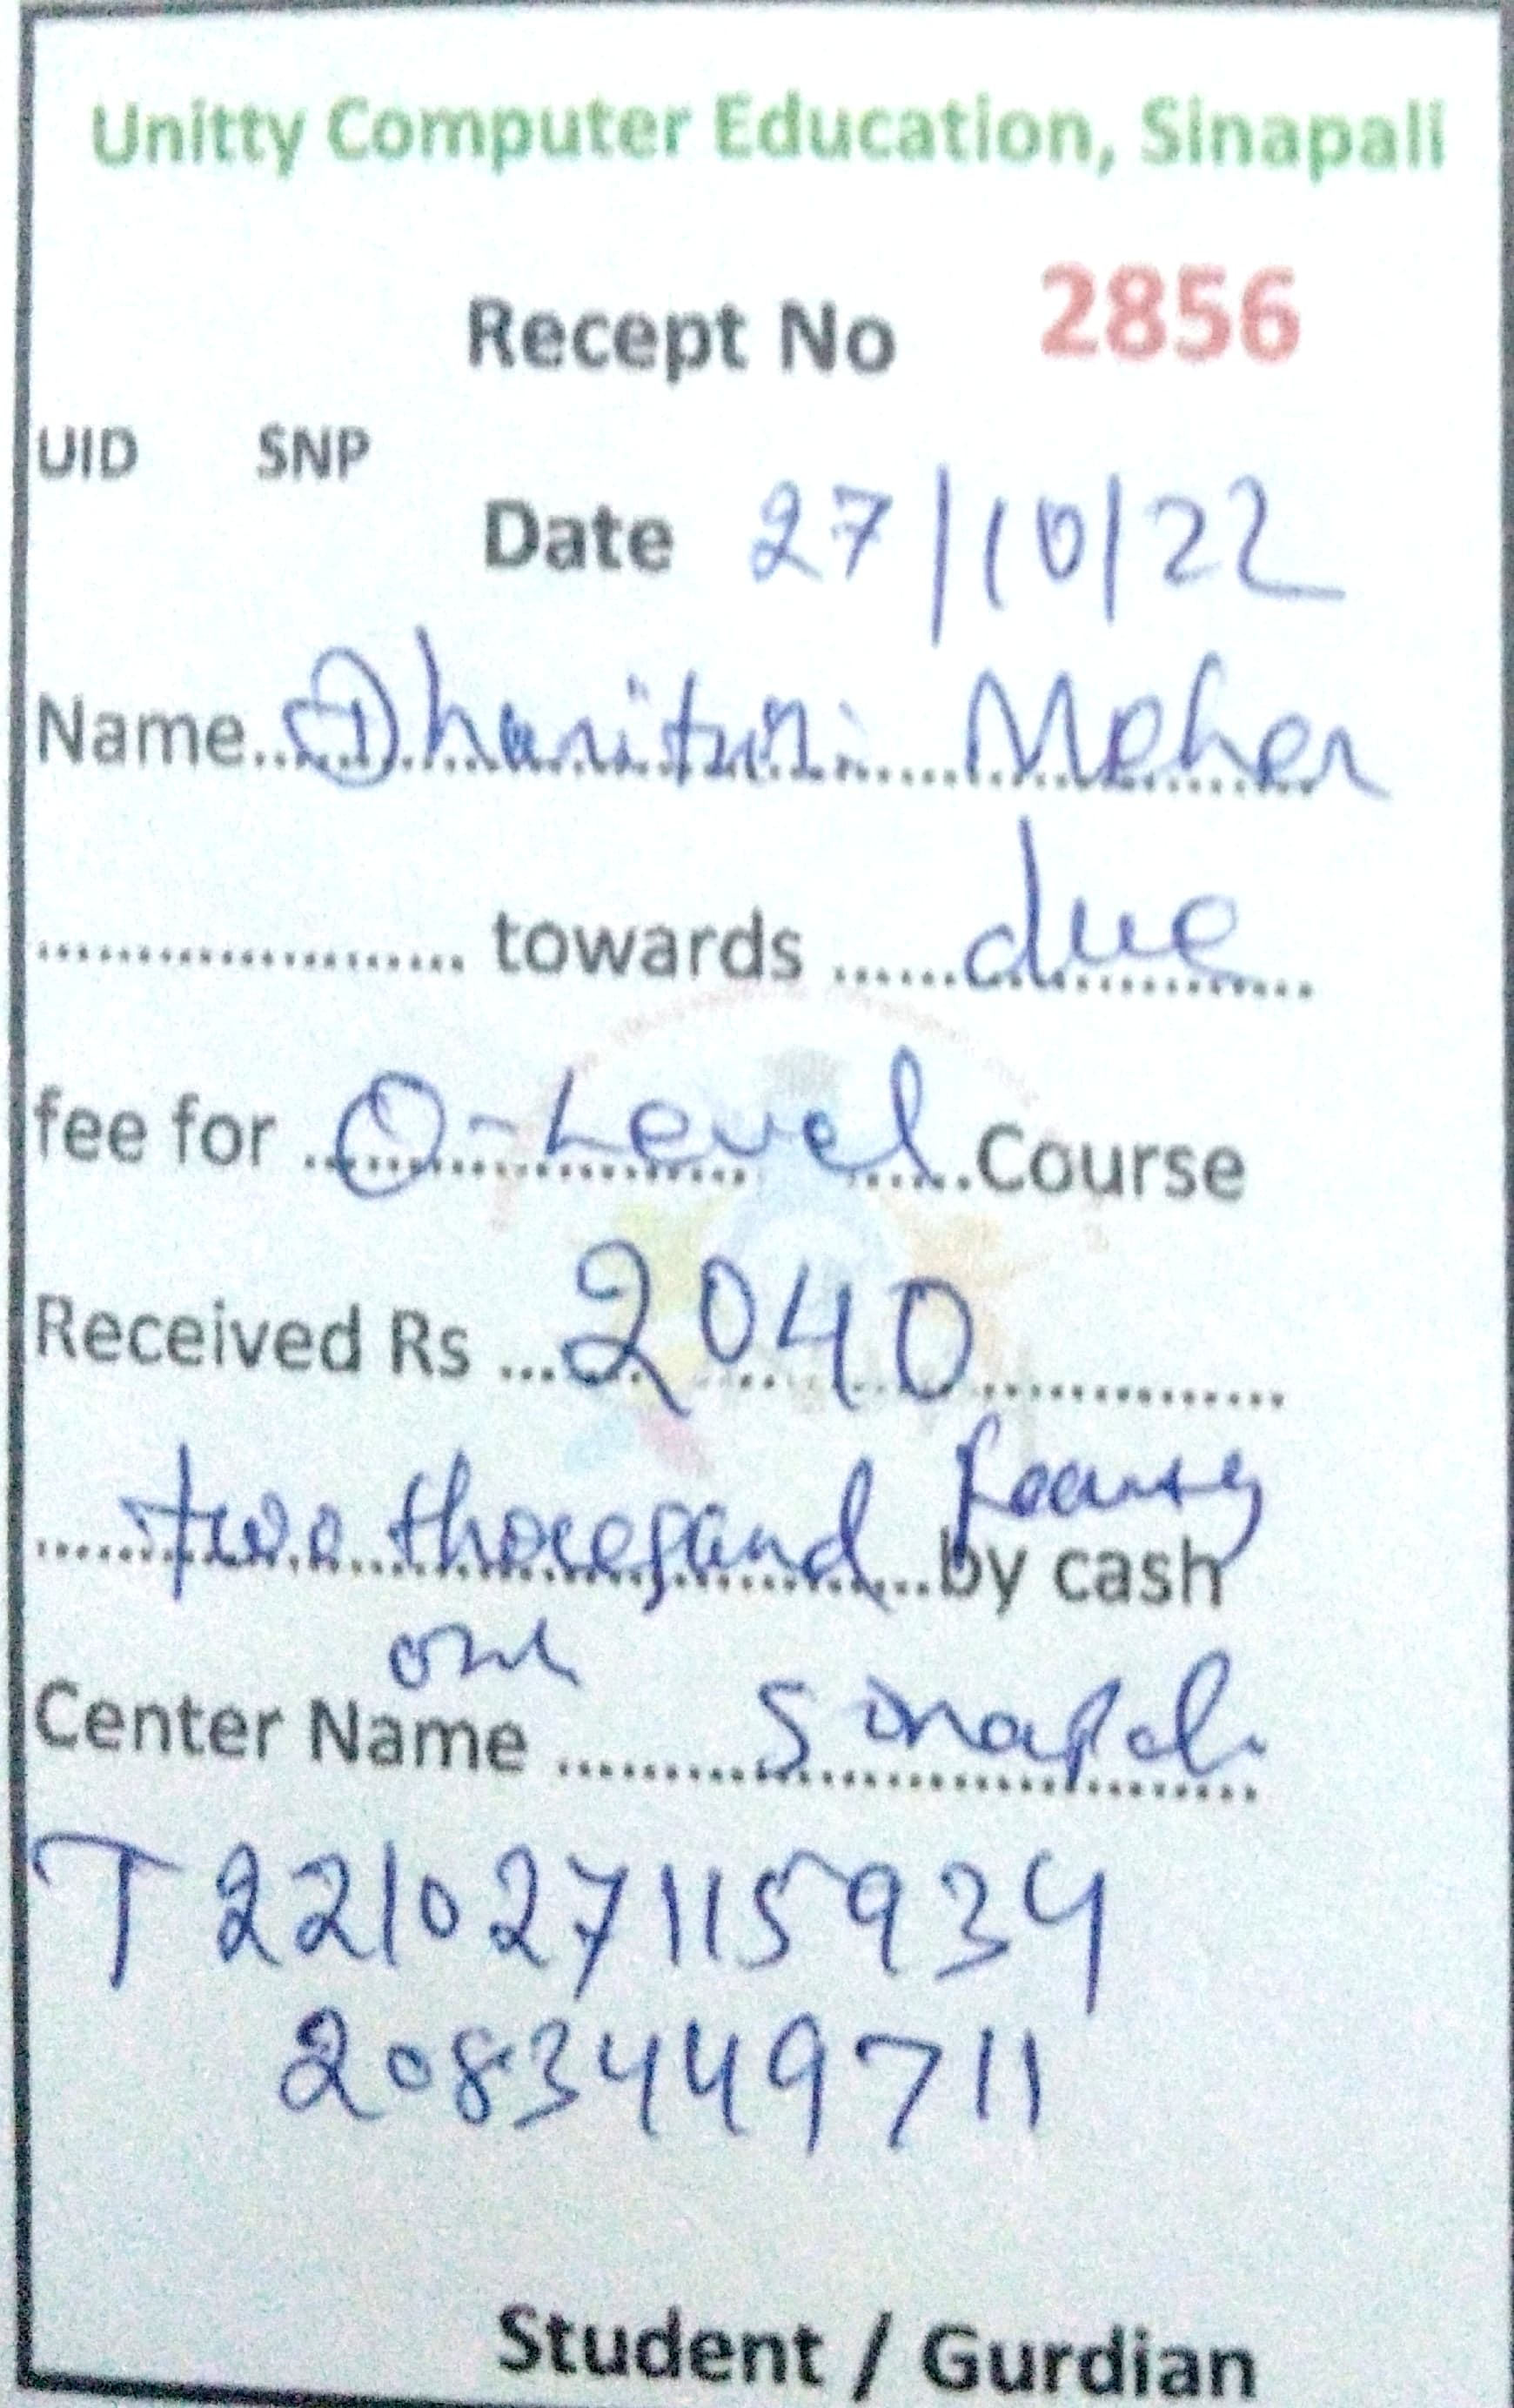 Unitty Computer Education, Sinapali
Recept No 2856
UID SNP
Date 27/10/22
Name Dharitri Meher
towards due
fee for O-Level Course
Received Rs 2040
two thousand
by cash
Center Name Sinapali
T221027115934
2083449711
Student / Gurdian